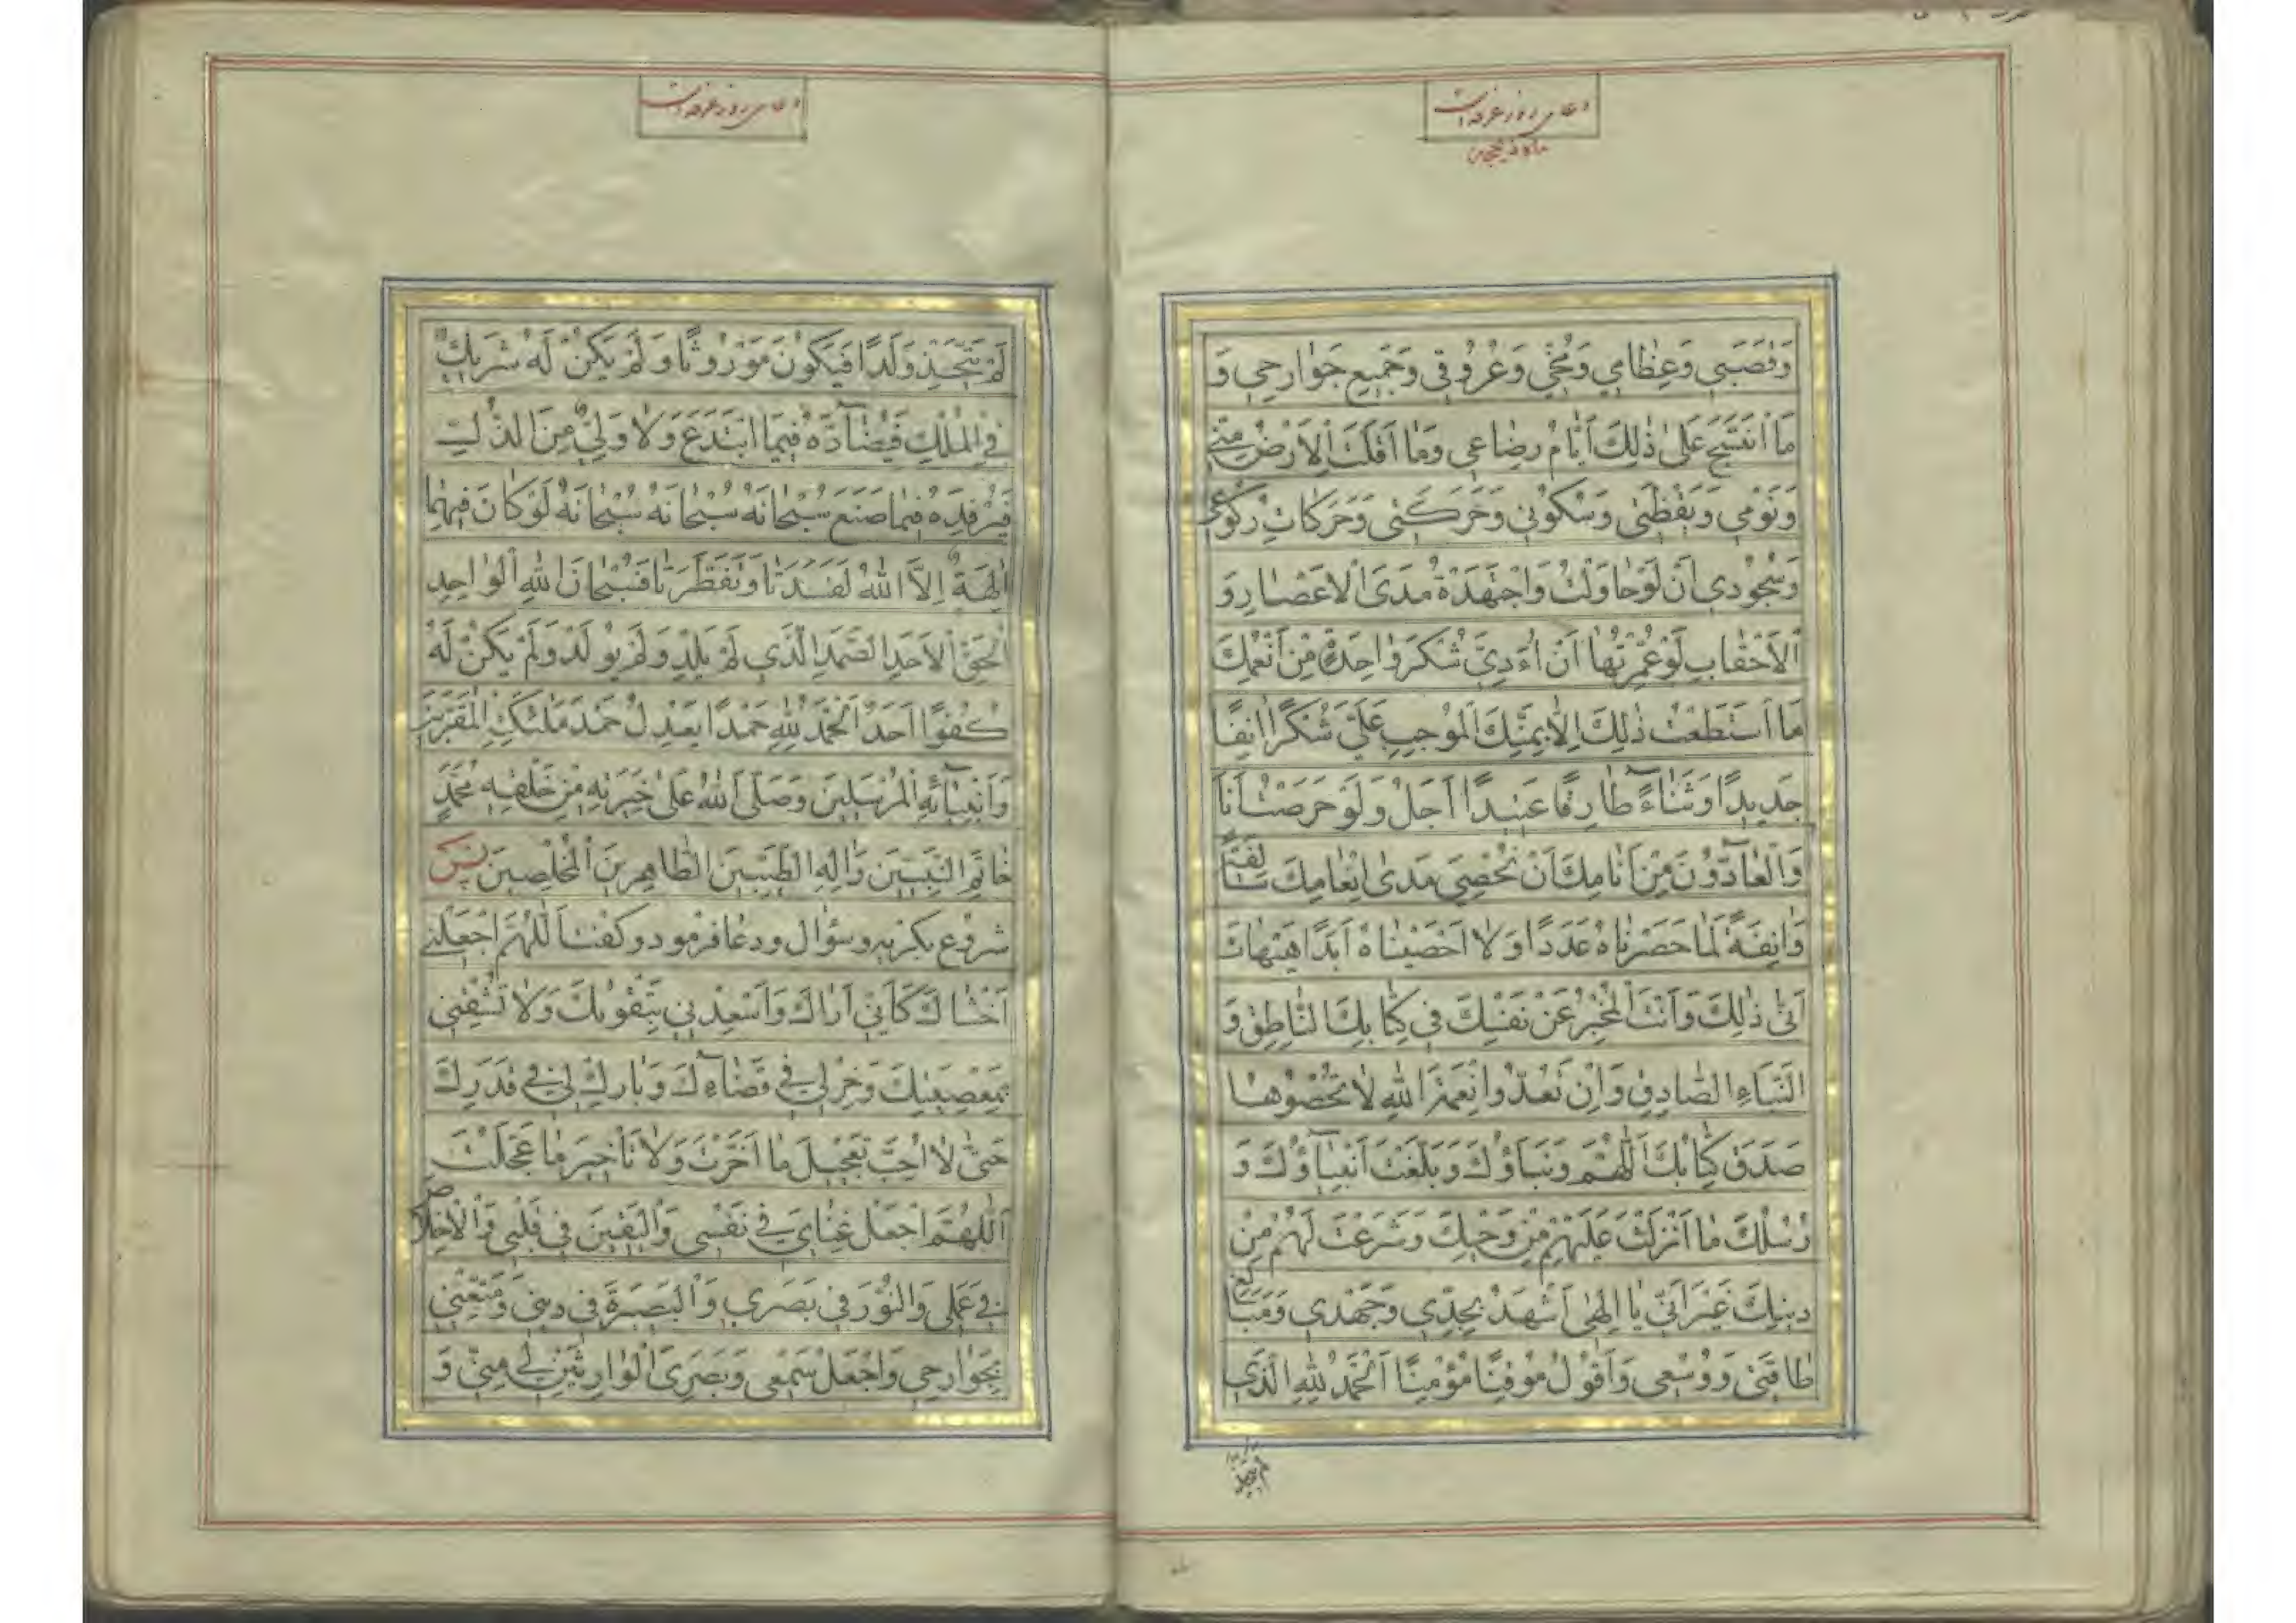 دعای روز عرفه است
ماه ذیحجه
وَقَصَبِي وَعِظٰامِي وَمُخّي وَعُرُوقي وَجَمِيعِ جَوٰارِحِي وَ
مَا انْتَسَجَ عَلىٰ ذٰلِكَ اَيّٰامُ رِضٰاعِي وَمٰا اَقَلَّتِ الْاَرْضُ مِنّي
وَنَوْمِي وَيَقْظَتِي وَسُكُونِي وَحَرَكَتِي وَحَرَكَاتِ رُكُوعِي
وَسُجُودِي اَنْ لَوْ حٰاوَلْتُ وَاجْتَهَدْتُ مَدَى الْاَعْصٰارِ وَ
الْاَحْقٰابِ لَوْ عُمِّرْتُهٰا اَنْ اُءَدِّيَ شُكْرَ وٰاحِدَةٍ مِنْ اَنْعُمِكَ
مَا اسْتَطَعْتُ ذٰلِكَ اِلّٰا بِمَنِّكَ الْمُوجِبِ عَلَيَّ شُكْرًا اٰنِفًا
جَدِيدًا وَثَنٰاءً طٰارِفًا عَتِيدًا اَجَلْ وَلَوْ حَرَصْتُ اَنَا
وَالْعٰادُّونَ مِنْ اَنٰامِكَ اَنْ نُحْصِيَ مَدىٰ اِنْعٰامِكَ سٰالِفَةً
وَاٰنِفَةً لَمٰا حَصَرْنٰاهُ عَدَدًا وَلٰا اَحْصَيْنٰاهُ اَبَدًا هَيْهٰاتَ
اَنّىٰ ذٰلِكَ وَاَنْتَ الْمُخْبِرُ عَنْ نَفْسِكَ فِي كِتٰابِكَ النّٰاطِقِ وَ
النَّبَاءِ الصّٰادِقِ وَاِنْ تَعُدُّوا نِعْمَةَ اللّٰهِ لٰا تُحْصُوهٰا
صَدَقَ كِتٰابُكَ اَللّٰهُمَّ وَنَبَاؤُكَ وَبَلَّغَتْ اَنْبِيٰاؤُكَ وَ
رُسُلُكَ مٰا اَنْزَلْتَ عَلَيْهِمْ مِنْ وَحْيِكَ وَشَرَعْتَ لَهُمْ مِنْ
دِينِكَ غَيْرَ اَنّي يٰا اِلٰهِي اَشْهَدُ بِجِدِّي وَجَهْدِي وَمَبٰالِغِ
طٰاقَتِي وَوُسْعِي وَاَقُولُ مُوقِنًا مُؤْمِنًا اَلْحَمْدُ لِلّٰهِ الَّذِي
دعای روز عرفه است
لَمْ يَتَّخِذْ وَلَدًا فَيَكُونَ مَوْرُوثًا وَلَمْ يَكُنْ لَهُ شَرِيكٌ
فِي الْمُلْكِ فَيُضٰآدَّهُ فِيمَا ابْتَدَعَ وَلٰا وَلِيٌّ مِنَ الذُّلِّ
فَيُرْفِدَهُ فِيمٰا صَنَعَ سُبْحٰانَهُ سُبْحٰانَهُ سُبْحٰانَهُ لَوْ كٰانَ فِيهِمٰا
اٰلِهَةٌ اِلَّا اللّٰهُ لَفَسَدَتٰا وَتَفَطَّرَتٰا فَسُبْحٰانَ اللّٰهِ الْوٰاحِدِ
الْحَقِّ الْاَحَدِ الصَّمَدِ الَّذِي لَمْ يَلِدْ وَلَمْ يُولَدْ وَلَمْ يَكُنْ لَهُ
كُفُوًا اَحَدٌ اَلْحَمْدُ لِلّٰهِ حَمْدًا يَعْدِلُ حَمْدَ مَلٰئِكَتِهِ الْمُقَرَّبِينَ
وَاَنْبِيٰآئِهِ الْمُرْسَلِينَ وَصَلَّى اللّٰهُ عَلىٰ خِيَرَتِهِ مِنْ خَلْقِهِ مُحَمَّدٍ
خٰاتَمِ النَّبِيّينَ وَاٰلِهِ الطَّيِّبِينَ الطّٰاهِرِينَ الْمُخْلَصِينَ پس
شروع بكريه وسؤال ودعا فرمود وكفت اَللّٰهُمَّ اجْعَلْنِي
اَخْشٰاكَ كَاَنّي اَرٰاكَ وَاَسْعِدْنِي بِتَقْوٰيكَ وَلٰا تُشْقِنِي
بِمَعْصِيَتِكَ وَخِرْلِي فِي قَضٰآءِكَ وَبٰارِكْ لِي فِي قَدَرِكَ
حَتّىٰ لٰا اُحِبَّ تَعْجِيلَ مٰا اَخَّرْتَ وَلٰا تَاْخِيرَ مٰا عَجَّلْتَ
اَللّٰهُمَّ اجْعَلْ غِنٰايَ فِي نَفْسِي وَالْيَقِينَ فِي قَلْبِي وَالْاِخْلٰاصَ
فِي عَمَلِي وَالنُّورَ فِي بَصَرِي وَالْبَصِيرَةَ فِي دِينِي وَمَتِّعْنِي
بِجَوٰارِحِي وَاجْعَلْ سَمْعِي وَبَصَرِيَ الْوٰارِثَيْنِ مِنّي وَ